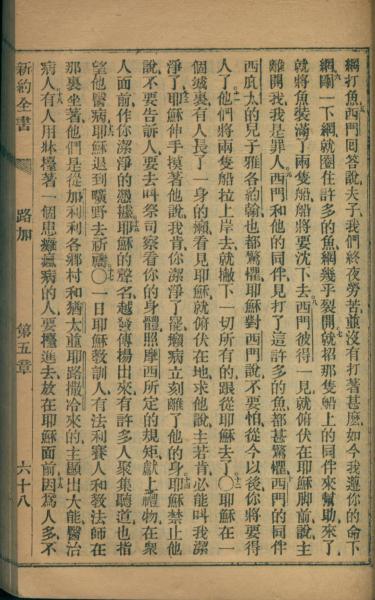 網打魚西門回答說夫子我們終夜勞苦並沒有打著甚麼如今我遵你的命下
網剛一下網就圈住許多的魚網幾乎裂開就招那隻船上的同伴來幫助來了
就將魚裝滿了兩隻船船將要沈下去西門彼得一見就俯伏在耶穌脚前說主
離開我我是罪人西門和他的同伴見打了這許多的魚都甚驚懼西門的同伴
西庇太的兒子雅各約翰也都驚懼耶穌對西門說不要怕從今以後你將要得
人了他們將兩隻船拉上岸去就撇下一切所有的跟從耶穌去了〇耶穌在一
個城裏有人長了一身的癩看見耶穌就俯伏在地求他說主若肯必能叫我潔
淨了耶穌伸手摸著他說我肯你潔淨了罷癩病立刻離了他的身耶穌禁止他
說不要告訴人要去叫祭司察看你的身體照摩西所定的規矩獻上禮物在衆
人面前作你潔淨的憑據耶穌的聲名越發傳揚出來有許多人聚集聽道也指
望他醫病耶穌退到曠野去祈禱〇一日耶穌教訓人有法利賽人和教法師在
那裏坐著他們是從加利利各鄉村和猶太並耶路撒冷來的主顯出大能醫治
病人有人用牀擡著一個患癱瘋病的人要擡進去放在耶穌面前因爲人多不
新約全書
路加
第五章
六十八